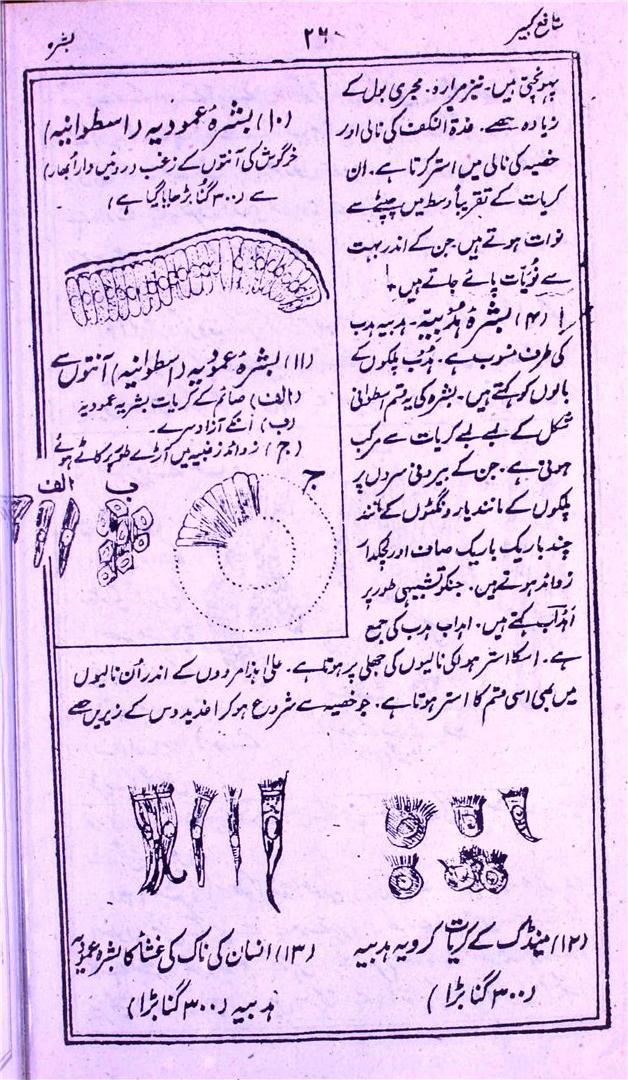 منافع کبیر
۲۶۰
بشرہ
پہونچتی ہیں۔ نیز مرارہ۔ مجری بول کے
زیادہ حصے۔ غدۃ انکف کی نالی اور
خصیہ کی نالی میں استر کرتا ہے۔ ان
کریات کے تقریباً وسط میں چپٹے سے
نوات ہوتے ہیں۔ جن کے اندر بہت
سے نویّات پائے جاتے ہیں +
(۴) بشرۂ ہُدبیّہ۔ ہدبیہ ہدب
کی طرف منسوب ہے۔ ہُدب پلکوں کے
بالوں کو کہتے ہیں۔ بشرہ کی یہ قسم اسطوانی
شکل کے لمبے لمبے کریات سے مرکب
ہوتی ہے۔ جن کے بیرونی سروں پر
پلکوں کے مانند یا رونگٹوں کے مانند
چند باریک باریک صاف اور لچکدار
زوائد ہوتے ہیں۔ جنکو تشبیہی طور پر
اَہداب کہتے ہیں۔ اہداب ہدب کی جمع
ہے۔ اسکا استر ہوا کی نالیوں کی جھلی پر ہوتا ہے۔ علیٰ ہذا مردوں کے اندر اُن نالیوں
میں بھی اسی قسم کا استر ہوتا ہے۔ جو خصیہ سے شروع ہو کر اغدیدوس کے زیریں حصے
(۱۰) بشرۂ عمودیہ (اسطوانیہ)
خرگوش کی آنتوں کے زغب (روئیں دار اُبھار)
سے (۳۰۰ گنا بڑھایا گیا ہے)
(۱۱) بشرۂ عمودیہ (اسطوانیہ) آنتوں سے
(الف) صائم کے کریات بشریہ عمودیہ
(ب) اُنکے آزاد سرے۔
(ج) زوائد زغبیہ میں آڑے طور پر کاٹے ہوئے
الف
ب
ج
(۱۲) مینڈک کے کریات کرویہ ہدبیہ
(۳۰۰ گنا بڑا)
(۱۳) انسان کی ناک کی غشا کا بشرہ عمودیہ
ہدبیہ (۳۰۰ گنا بڑا)